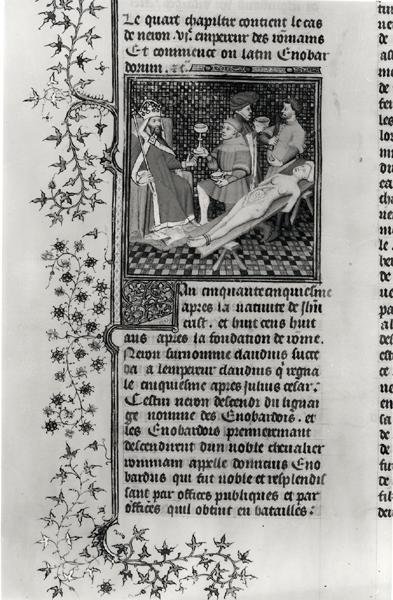 Le quart chapiltre contient le cas
de neron .vi. empereur des rommains
Et commence ou latin Enobar
dorum. &c.
An cinquante cinquiesme
apres la nativite de jhu
crist. et huit cens huit
ans apres la fondation de rome.
Neron surnomme claudius succe
da a lempereur claudius qui regna
le cinquiesme apres julius cesar.
Cestui neron descendi du lignai
ge nomme des Enobardois. et
les Enobardois premierement
descendirent dun noble chevalier
rommain appelle domicius Eno
bardus qui fut noble et resplendis
sant par offices publiques et par
offices quil obtint en batailles: